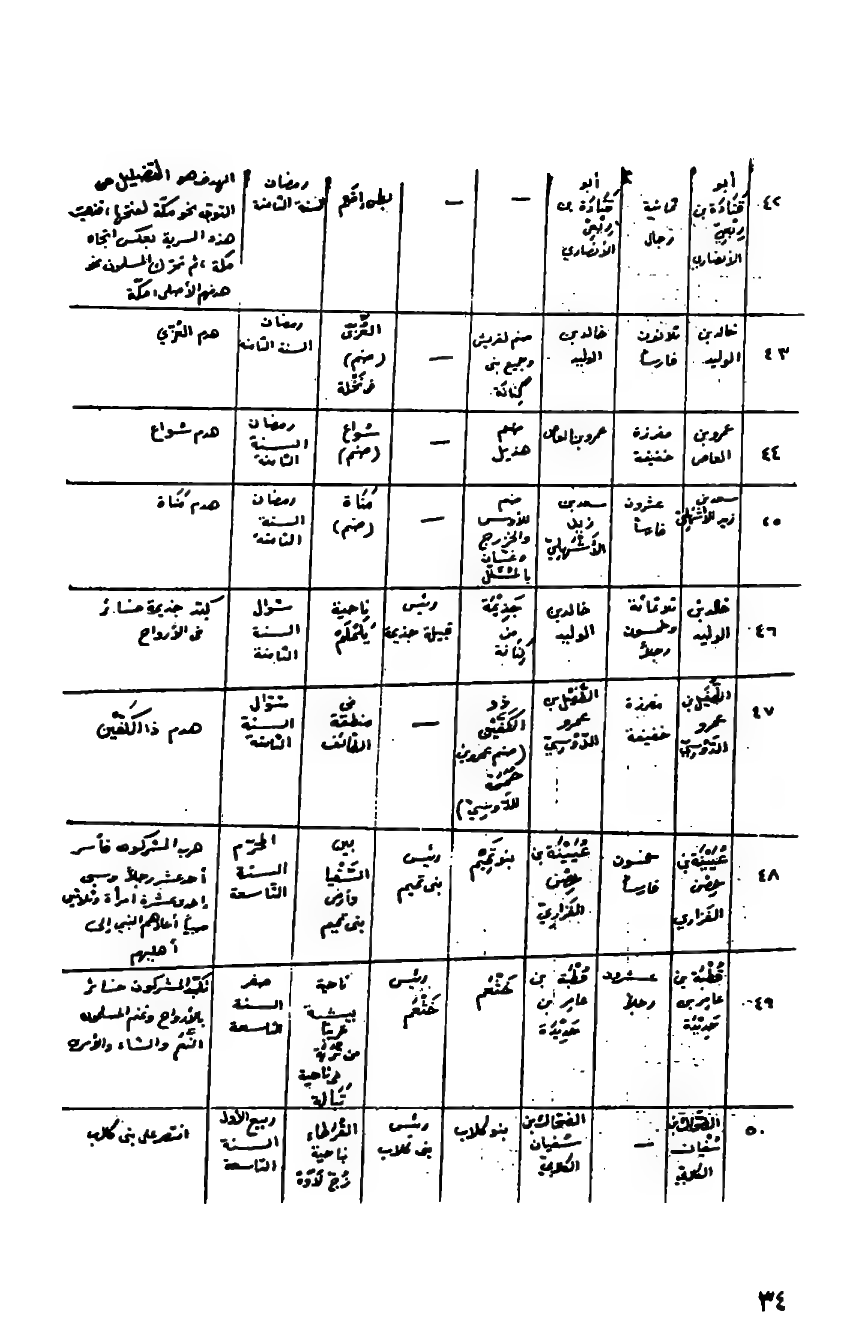 ٤٢ أبو قتادة بن رِبْعيّ الأنصاري | ثمانية رجال | أبو قتادة بن رِبْعيّ الأنصاري | — | — | بطن إضم | رمضان السنة الثامنة | الهدف هو التضليل عن التوجه نحو مكة لفتحها، فتحت هذه السرية بعكس اتجاه مكة، ثم تحرّك المسلمون نحو هدفهم الأصلي: مكة
٤٣ خالد بن الوليد | ثلاثون فارساً | خالد بن الوليد | صنم لقريش وجميع بني كِنانَة | — | العُزّى (صنم) في نَخْلة | رمضان السنة الثامنة | هدم العُزّي
٤٤ عمرو بن العاص | مفرزة خفيفة | عمرو بن العاص | صنم هذيل | — | سُواع (صنم) | رمضان السنة الثامنة | هدم سُواع
٤٥ سعد بن زيد الأشْهَليّ | عشرون فارساً | سعد بن زيد الأشْهَليّ | صنم للأوس والخزرج وغسّان بالمشلّل | — | مَناة (صنم) | رمضان السنة الثامنة | هدم مَناة
٤٦ خالد بن الوليد | ثلاثمائة وخمسون رجلاً | خالد بن الوليد | جَذِيْمَة من كِنانة | رئيس قبيلة جذيمة | ناحية يَلَمْلَمْ | شوّال السنة الثامنة | كبّد جذيمة خسائر في الأرواح
٤٧ الطُّفَيْل بن عمرو الدَّوْسِيّ | مفرزة خفيفة | الطُّفَيْل بن عمرو الدَّوْسِيّ | ذو الكَفَّيْن (صنم عمرو بن حُمَمَة للدَّوسِيّ) | — | في منطقة الطائف | شوّال السنة الثامنة | هدم ذا الكَفَّين
٤٨ عُيَيْنَة بن حِصْن الفزاري | خمسون فارساً | عُيَيْنَة بن حِصْن الفَزَارِيّ | بنو تَمِيْم | رئيس بني تميم | بين السُّقْيا وأرض بني تميم | المحرّم السنة التاسعة | هرب المشركون فأسر أحد عشر رجلاً وسبى إحدى عشرة امرأة وثلاثين صبياً أعادهم النبي إلى أهليهم
٤٩ قُطْبَة بن عامر بن حَدِيْدَة | عشرون رجلاً | قُطْبَة بن عامر بن حَدِيْدَة | خَثْعَم | رئيس خَثْعَم | ناحية بيشة قريباً من تُرَبَة في ناحية تَبَالة | صفر السنة التاسعة | تكبّد المشركون خسائر بالأرواح وغنم المسلمون النَّعَم والشاء والأسرى
٥٠ الضحّاك بن سُفْيان الكلابيّ | — | الضحّاك بن سُفْيان الكلابيّ | بنو كلاب | رئيس بني كلاب | القُرَطاء ناحية زُجّ لَاوَة | ربيع الأول السنة التاسعة | انتصر على بني كلاب
٣٤